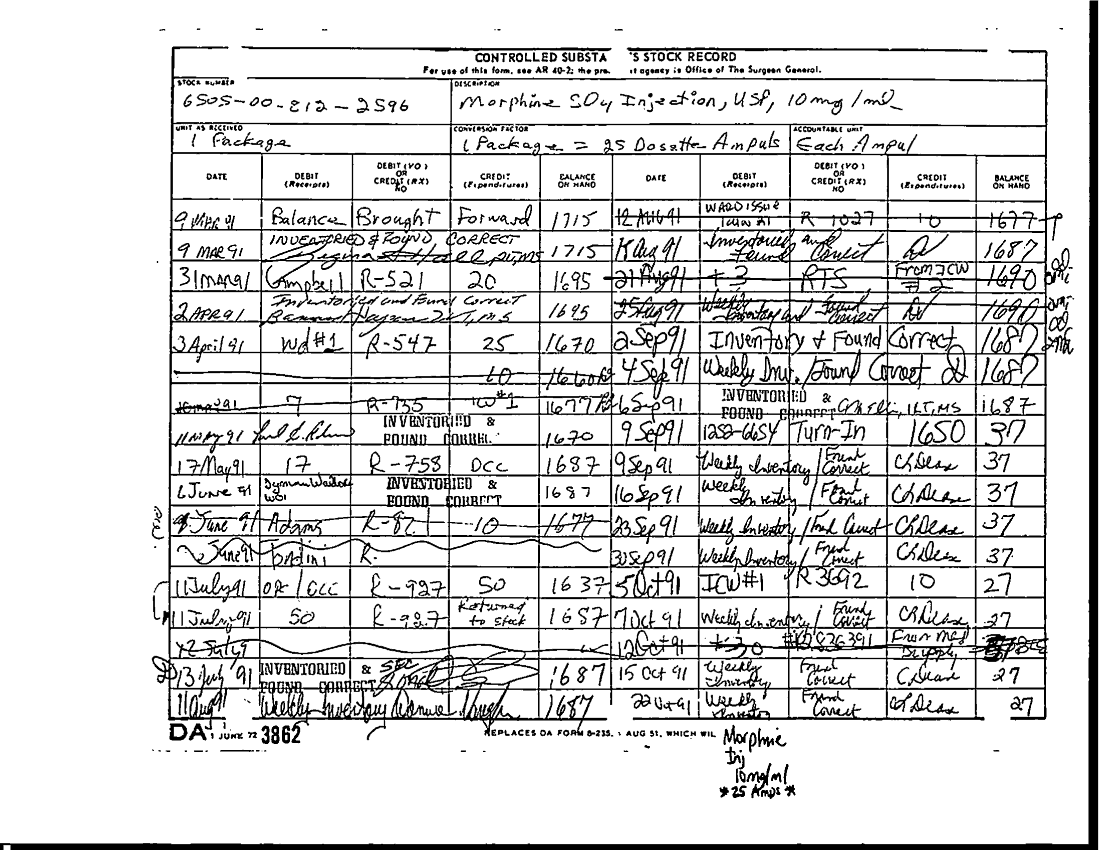 CONTROLLED SUBSTA 'S STOCK RECORD
For use of this form, see AR 40-2; the pro. t agency is Office of The Surgeon General.
STOCK NUMBER
6505-00-812-2596
DESCRIPTION
Morphine SO4 Injection, USP, 10mg/ml
UNIT AS RECEIVED
1 Package
CONVERSION FACTOR
1 Package = 25 Dosette Ampuls
ACCOUNTABLE UNIT
Each Ampul
DATE DEBIT (Receipts) DEBIT (VO) OR CREDIT (RX) NO CREDIT (Expenditures) BALANCE ON HAND DATE DEBIT (Receipts) DEBIT (VO) OR CREDIT (RX) NO CREDIT (Expenditures) BALANCE ON HAND
9 MAR 91 Balance Brought Forward 1715 12 AUG 91 WARD ISSUE ICW #1 R 1027 10 1677
9 MAR 91 INVENTORIED & FOUND CORRECT 1715 Aug 91 Inventoried and Found Correct 1687
31 MAR 91 Campbell R-521 20 1695 21 Aug 91 + 3 RTS From ICW # 2 1690
2 APR 91 Inventoried and Found Correct 1695 25 Aug 91 Weekly Inventory and Found Correct 1690
3 April 91 Wd #1 R-547 25 1670 2 Sep 91 Inventory & Found Correct 1687
10 1660 4 Sep 91 Weekly Inv. / Found Correct 1687
7 R-755 1677 6 Sep 91 INVENTORIED & FOUND CORRECT 1LT, MS 1687
11 May 91 INVENTORIED & FOUND CORREC 1670 9 Sep 91 1252-6654 Turn-In 1650 37
17 May 91 17 R-758 DCC 1687 9 Sep 91 Weekly Inventory / Found Correct 37
June 91 INVENTORIED & FOUND CORRECT 1687 16 Sep 91 Weekly Inventory / Found Correct 37
June 91 Adams R-82 10 1677 23 Sep 91 Weekly Inventory / Found Correct 37
June 91 R. 30 Sep 91 Weekly Inventory / Found Correct 37
11 July 91 OR / CCC R-927 50 1637 5 Oct 91 ICW #1 R3692 10 27
11 July 91 50 R-927 Returned to stock 1687 7 Oct 91 Weekly Inventory / Found Correct 27
12 July 12 Oct 91 + 30 From Med Supply
13 July 91 INVENTORIED & FOUND CORRECT 1687 15 Oct 91 Weekly Inventory Found Correct 27
11 Aug 91 Weekly Inventory 1687 22 Oct 91 Weekly Inventory Found Correct 27
DA 1 JUNE 72 3862 REPLACES DA FORM 8-235, 1 AUG 51, WHICH WIL
Morphine
Inj
10mg/ml
* 25 Amps *